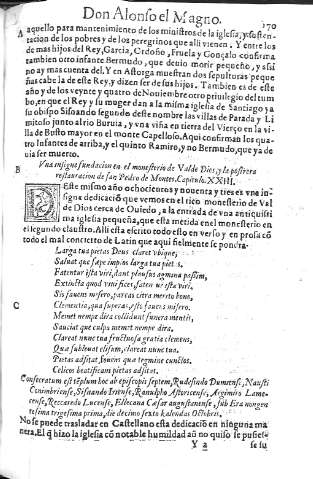 Don Alonso el Magno.
170
A
aquello para mantenimiento de los ministros de la iglesia, y susten-
tacion de los pobres y de los peregrinos que alli vienen. Y entre los
de mas hijos del Rey, Garcia, Ordoño, Fruela y Gonçalo confirma
tambien otro infante Bermudo, que deuio morir pequeño, y assi
no ay mas cuenta del. Y en Astorga muestran dos sepulturas peque
ñas cabe la de este Rey, y dizen ser de sus hijos. Tambien es de este
año y de los veynte y quatro de Nouiembre otro priuilegio del tum
bo, en que el Rey y su muger dan a la misma iglesia de Santiago y a
su obispo Sisnando segundo deste nombre las villas de Parada y Li
mitoso junto al rio Buruia, y vna viña en tierra del Vierço en la vi-
lla de Busto mayor en el monte Capelloso. Aqui confirman los qua-
tro Infantes de arriba, y el quinto Ramiro, y no Bermudo, que ya de
uia ser muerto.
B
Vna insigne fundacion en el monesterio de Valde Dios, y la postrera
restauracion de san Pedro de Montes. Capitulo. XXIII.
DEste mismo año ochocientos y nouenta y tres es vna in-
signe dedicació que vemos en el rico monesterio de Val
de Dios cerca de Ouiedo, a la entrada de vna antiquissi
ma iglesia pequeña, que esta metida en el monesterio en
el segundo claustro. Alli esta escrito todo esto en verso y en prosa có
todo el mal concierto de Latin que aqui fielmente se pondra.
Larga tua pietas Deus claret vbique,
Saluat que sepe impios larga tua pietas.
Fatentur ista viri, dant plausus agmina passim,
Extincta quod viuifices, faten ur ista viri.
Sis fauens misero, pareas citra merito bona,
Clementia, qua superas, esto fauens misero.
C
Memet nempe dira collidunt funera mentis,
Sauciat que culpa memet nempe dira.
Clareat nunc tua fructuosa gratia clemens,
Qua subleuat elisum, clareat nunc tua.
Pietas adsitat, foueas qua tegmine cunctos.
Celicos beatificans pietas adsitat.
Consecratum est téplum hoc ab episcopis septem, Rudesindo Dumense, Nausti
Conimbriense, Sisnando Iriense, Ranulpho Astoricense, Argimiro Lame-
cense, Reccaredo Lucense, Ellecana Cæsaraugustanense, sub Era nongen
tesima trigesima prima, die decimo sexto kalendas Octobris.
No se puede trasladar en Castellano esta dedicació en ninguna ma
nera. El q̃ hizo la iglesia có notable humildad aũ no quiso se pusies-
Y 2
se su